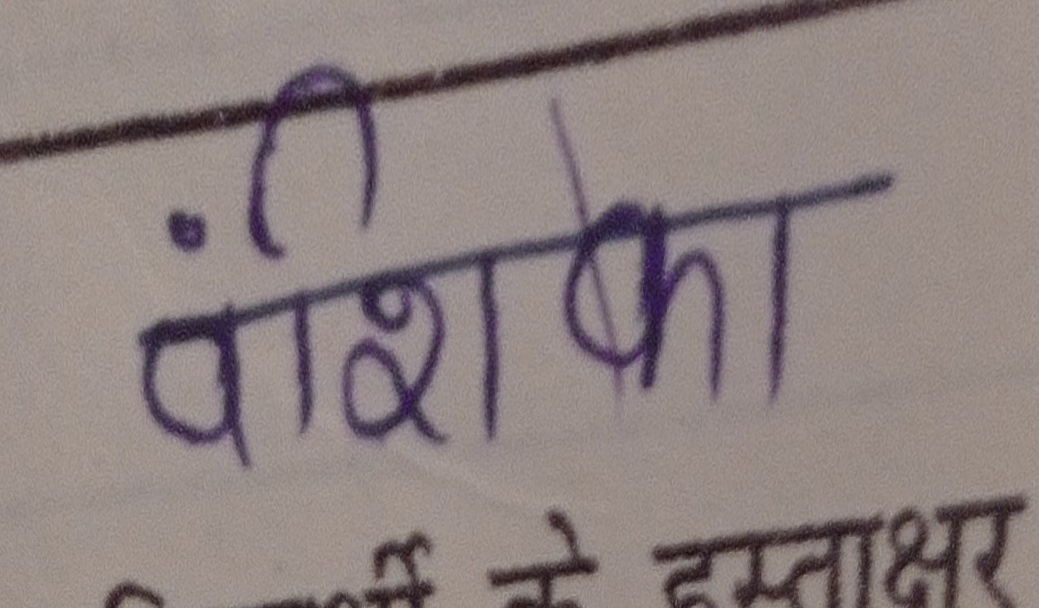 वंशिका
के हस्ताक्षर